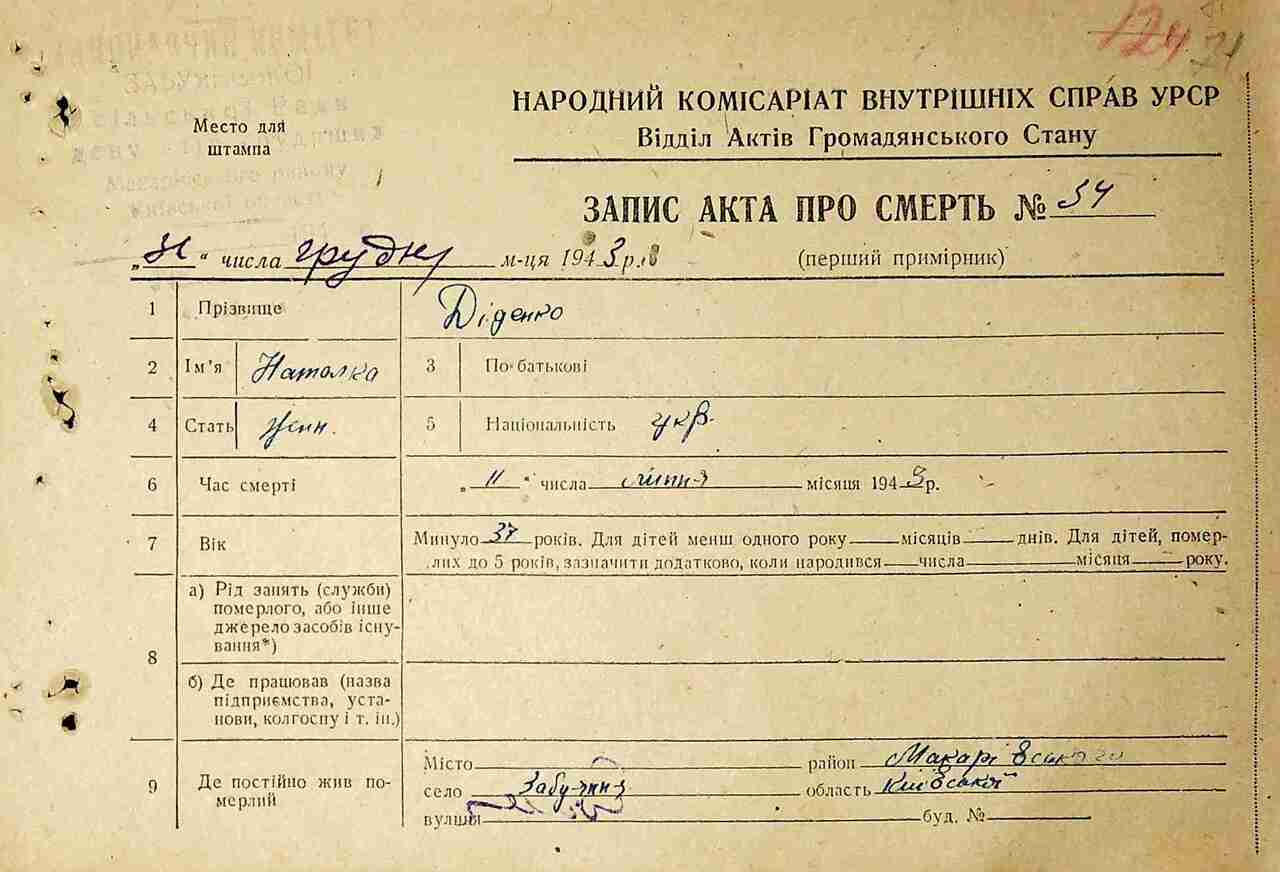 124
21
ЗАБУЯНСЬКОЇ
Сільської Ради
Макарівського району
Київської області
Место для
штампа
НАРОДНИЙ КОМІСАРІАТ ВНУТРІШНІХ СПРАВ УРСР
Відділ Актів Громадянського Стану
ЗАПИС АКТА ПРО СМЕРТЬ № 34
„31“ числа грудня м-ця 1943 р.
(перший примірник)
1 Прізвище Діденко
2 Ім'я Наталка 3 По-батькові
4 Стать жін. 5 Національність укр.
6 Час смерті „11“ числа липня місяця 1943 р.
7 Вік Минуло 37 років. Для дітей менш одного року місяців днів. Для дітей, помер-
лих до 5 років, зазначити додатково, коли народився числа місяця року.
8 а) Рід занять (служби)
померлого, або інше
джерело засобів існу-
вання*)
б) Де працював (назва
підприємства, уста-
нови, колгоспу і т. ін.)
9 Де постійно жив по-
мерлий
Місто район Макарівського
село Забуяння область Київської
вулиці буд. №